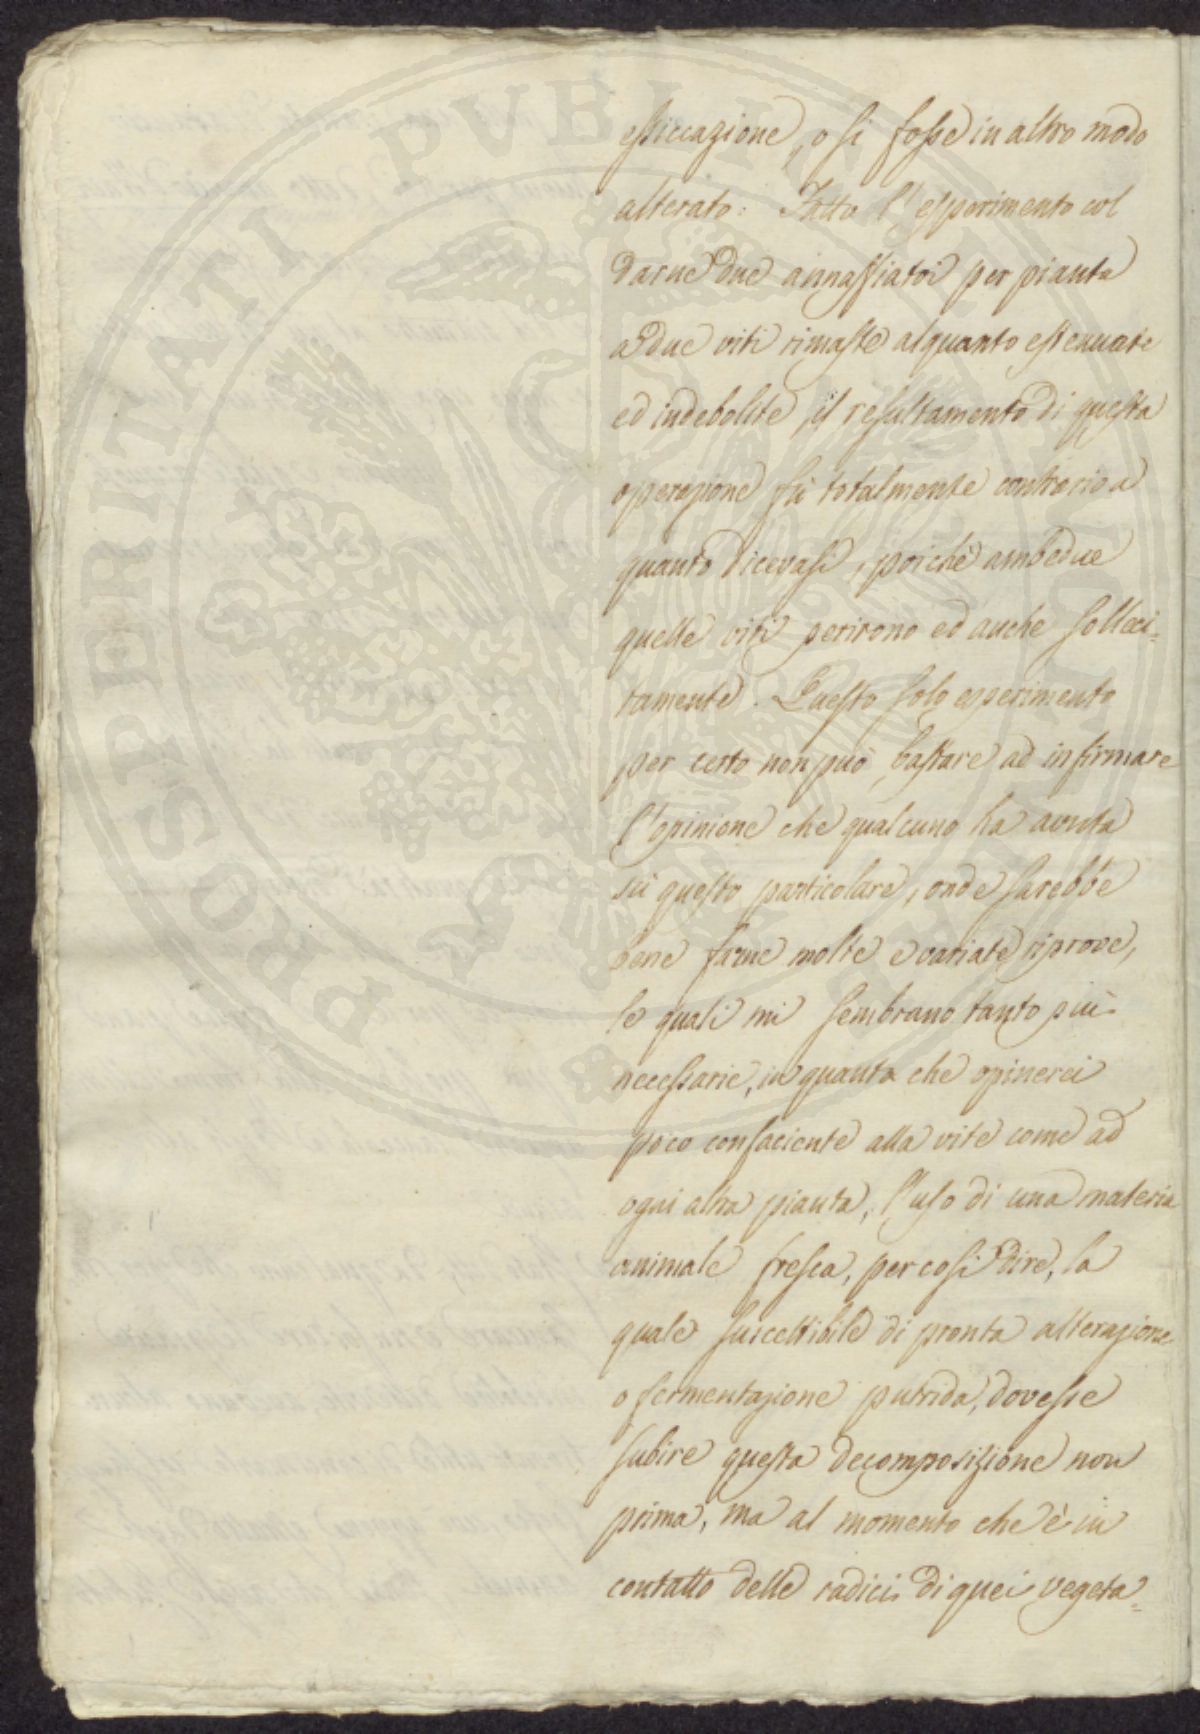 essiccazione, o si fosse in altro modo
alterato: Fatto l'esperimento col
darne due annaffiatoi per pianta
a due viti rimaste alquanto estenuate
ed indebolite, il resultamento di questa
operazione fù totalmente contrario a
quanto dicevasi, poichè ambedue
quelle viti perirono ed anche solleci=
tamente. Questo solo esperimento
per certo non può bastare ad infirmare
l'opinione che qualcuno ha avuta
sù questo particolare, onde sarebbe
bene farne molte e variate riprove,
le quali mi sembrano tanto più
necessarie, in quanto che opinerei
poco confaciente alla vite come ad
ogni altra pianta, l'uso di una materia
animale fresca, per così dire, la
quale suscettibile di pronta alterazione
o fermentazione putrida, dovesse
subire questa decomposizione non
prima, ma al momento che è in
contatto delle radici di quei vegeta=
PROSPERITATI PVBLICAE